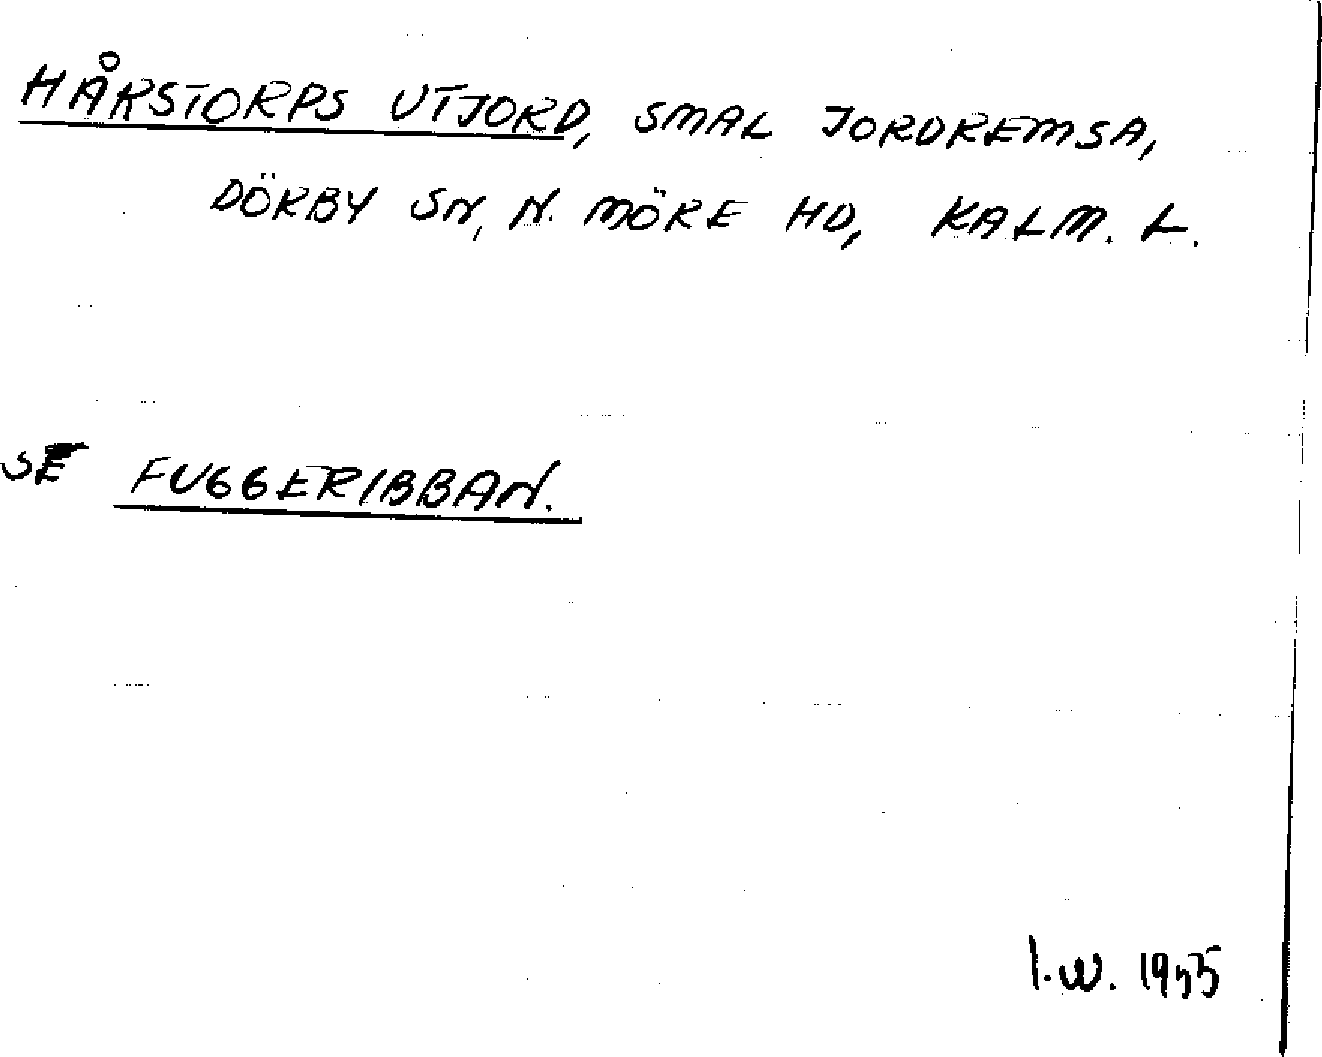 HÅRSTORPS UTJORD, SMAL JORDREMSA,
DÖRBY SN, N. MÖRE HD, KALM. L.
SE FUGGERIBBAN.
I.W. 1955